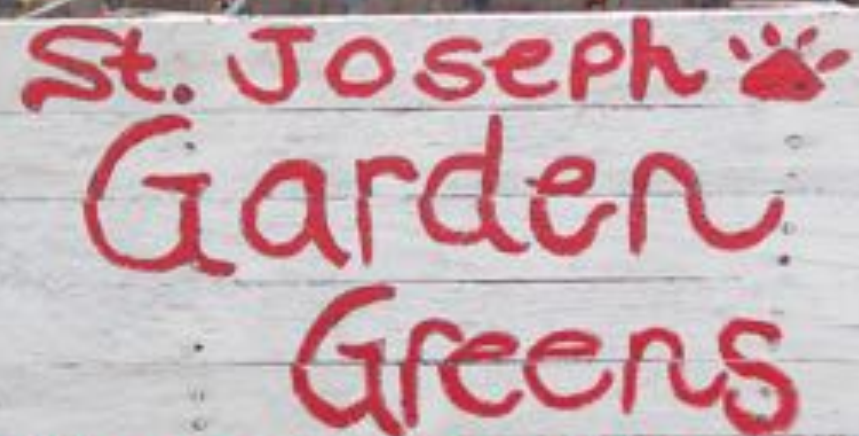 St. Joseph
Garden
Greens